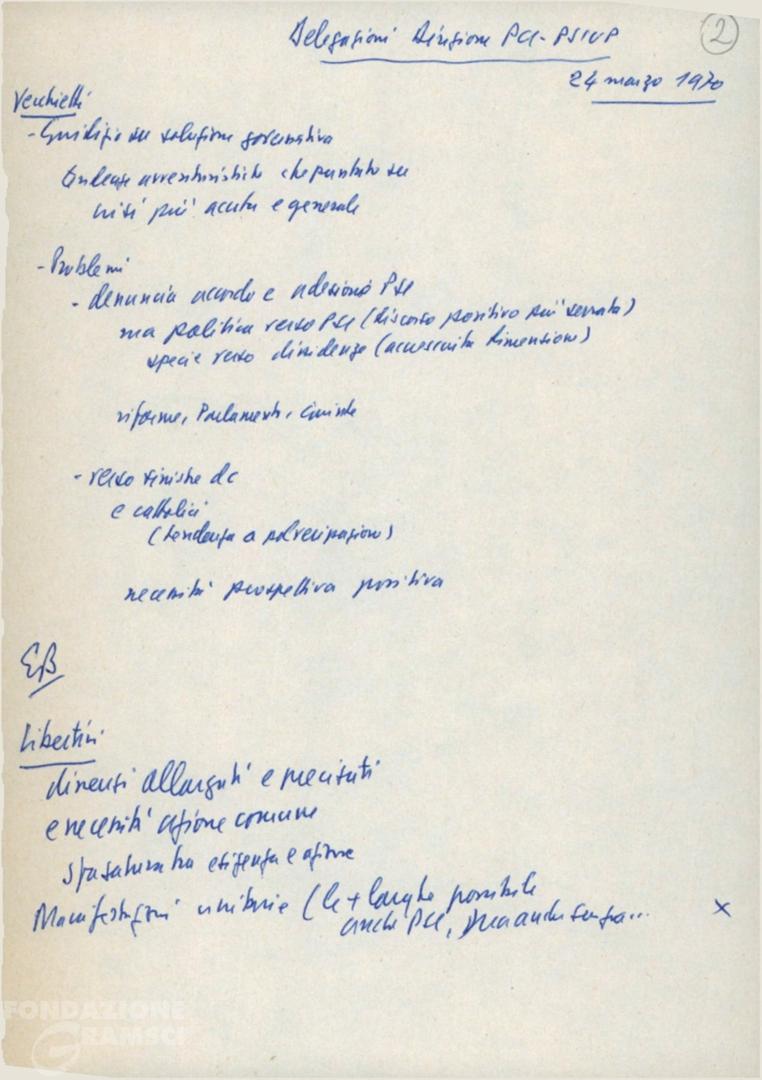 Delegazioni Direzione PCI-PSIUP
2
24 marzo 1970
Vecchietti
- Giudizio su soluzione governativa
tendenze avventuristiche che puntate su
crisi più acuta e generale
- Problemi
- denuncia accordo e adesione PSI
ma politica verso PSI (discorso positivo più serrato)
specie verso dissidenze (accresciute dimensioni)
riforme, Parlamento, Giunte
- verso sinistre dc
e cattolici
(tendenza a polverizzazione)
necessità prospettiva positiva
EB
Libertini
dissensi allargati e precisati
e necessità azione comune
sfasatura tra esigenza e azione
Manifestazioni unitarie (le + larghe possibile
anche PSI, ma anche senza...
x
FONDAZIONE
GRAMSCI